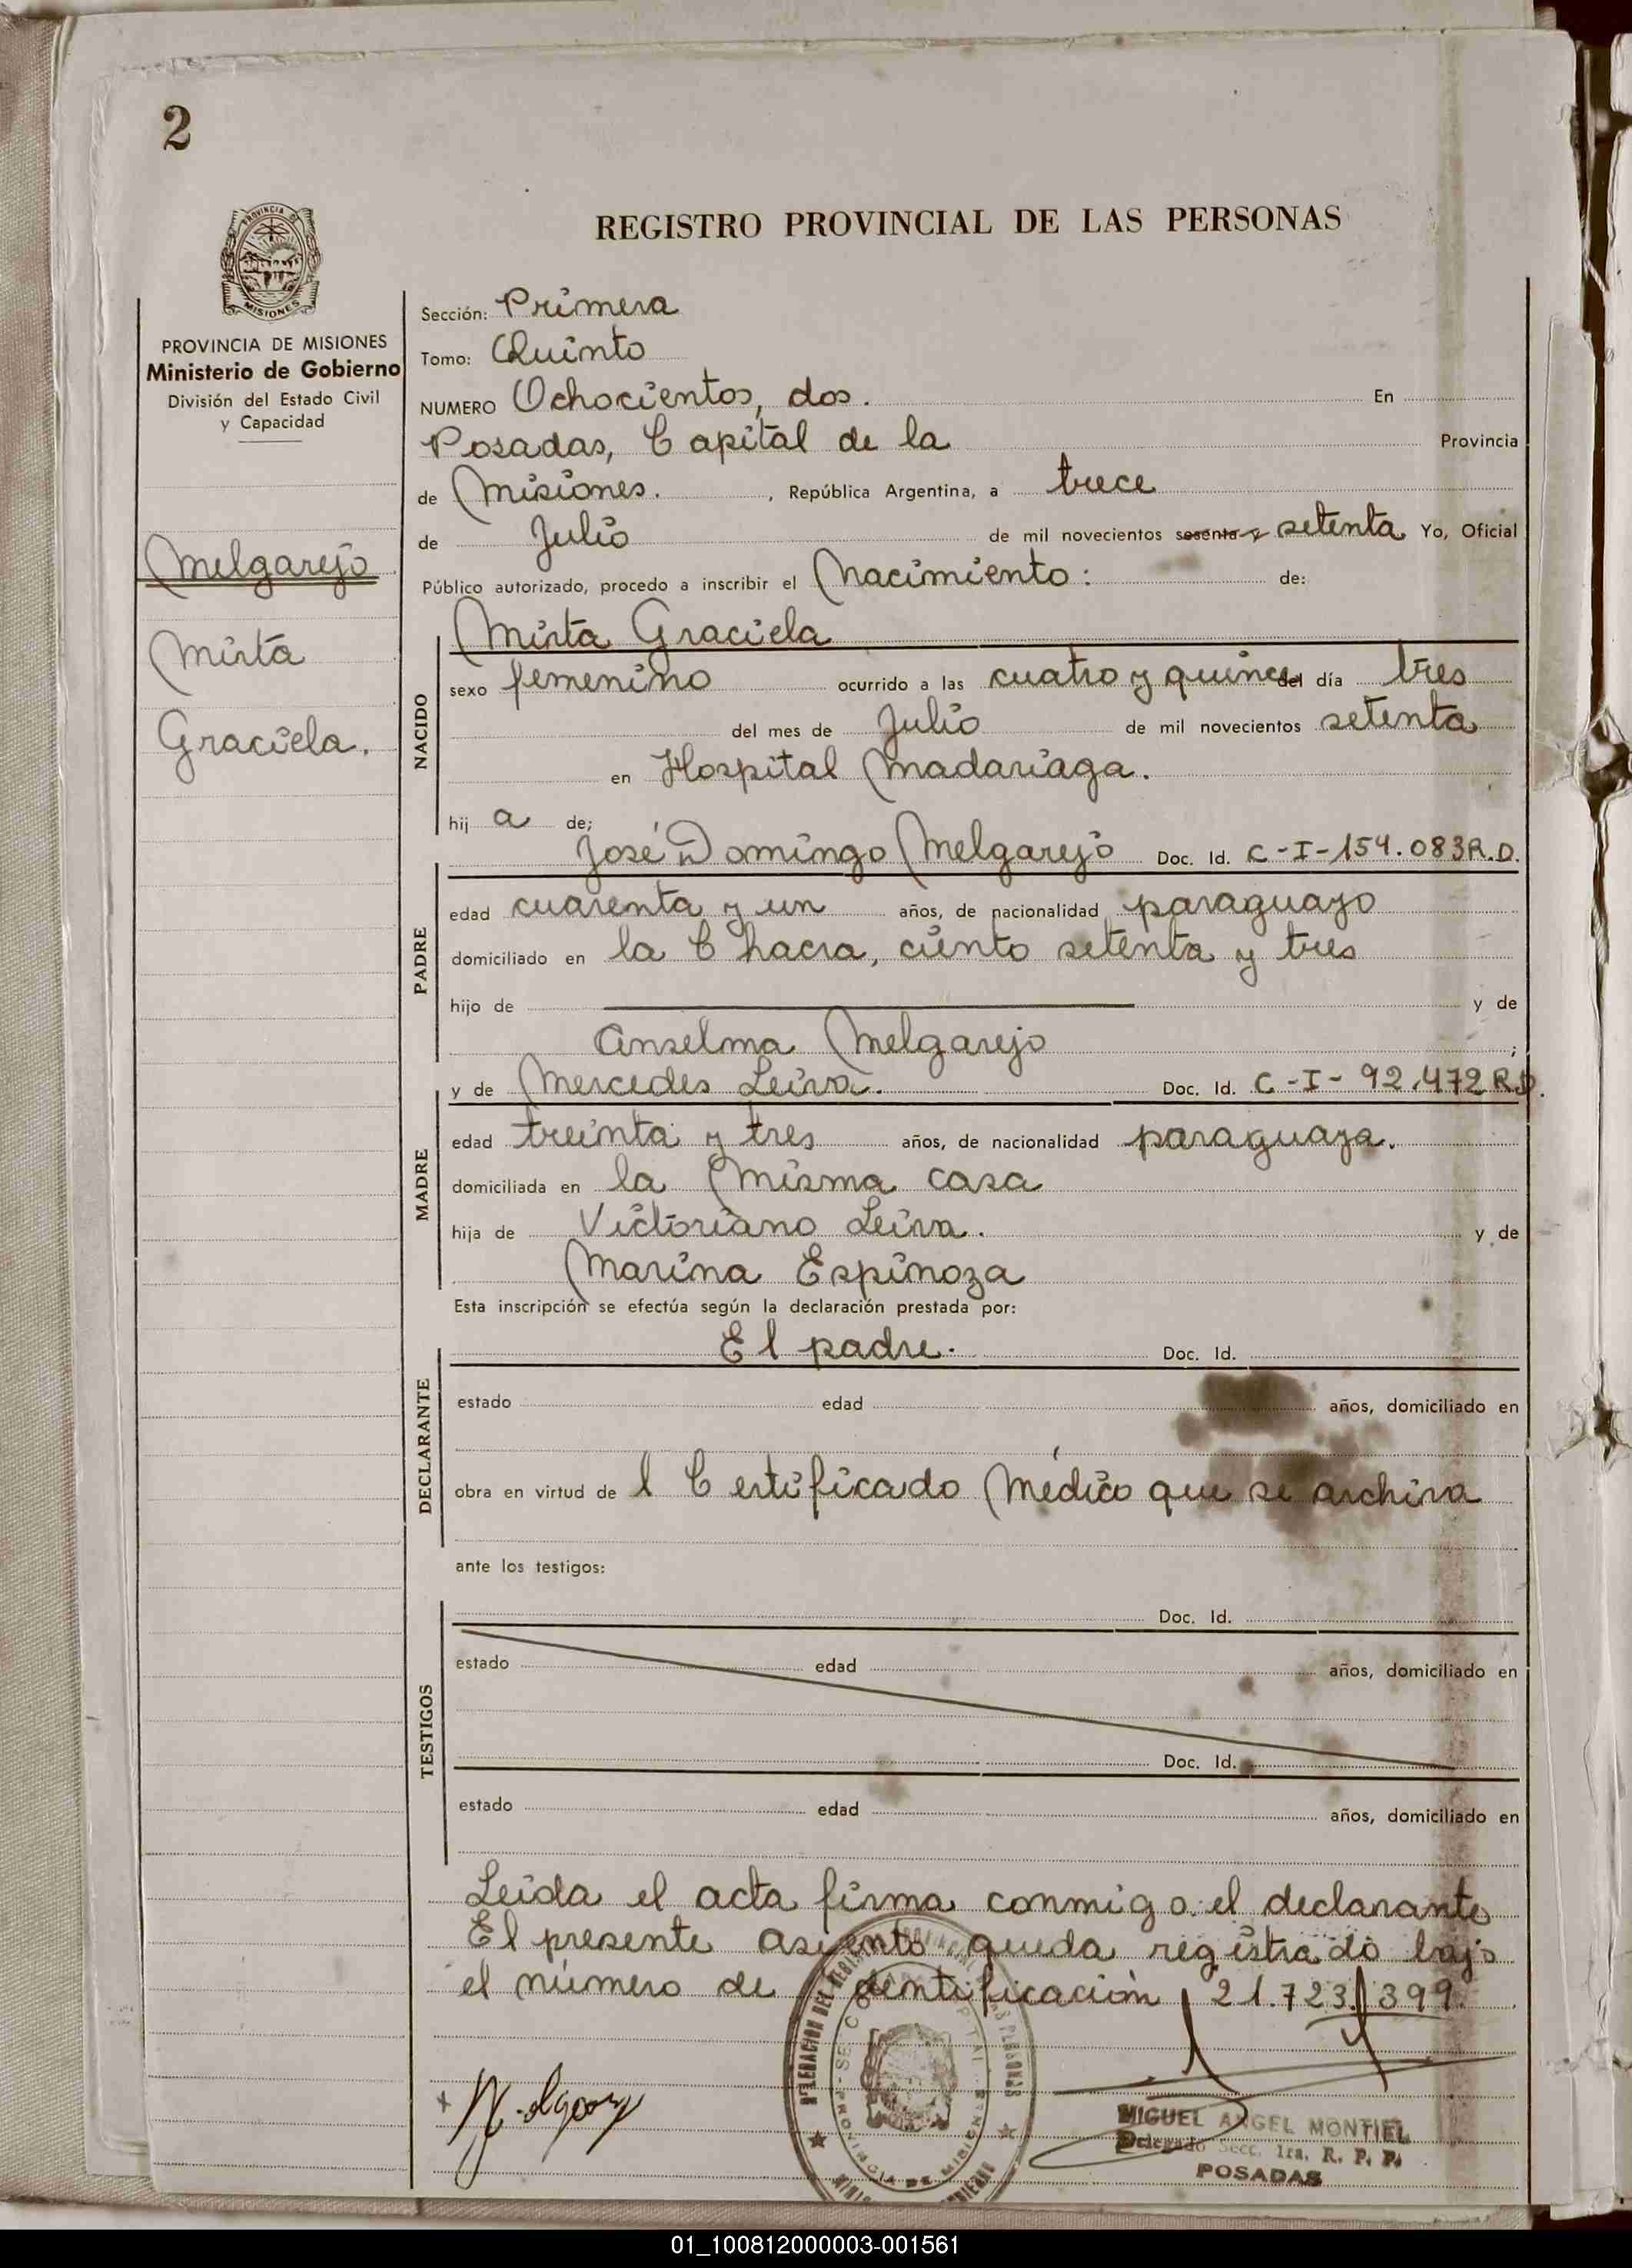 2
REGISTRO PROVINCIAL DE LAS PERSONAS
PROVINCIA DE
MISIONES
PROVINCIA DE MISIONES
Ministerio de Gobierno
División del Estado Civil
y Capacidad
Melgarejo
Mirta
Graciela.
Sección: Primera
Tomo: Quinto
NUMERO Ochocientos, dos. En
Posadas, Capital de la Provincia
de Misiones. , República Argentina, a trece
de Julio de mil novecientos sesenta y setenta Yo, Oficial
Público autorizado, procedo a inscribir el Nacimiento: de:
Mirta Graciela
NACIDO
sexo femenino ocurrido a las cuatro y quince del día tres
del mes de Julio de mil novecientos setenta
en Hospital Madariaga.
hij a de;
José Domingo Melgarejo Doc. Id. C-I-154.083R.D.
PADRE
edad cuarenta y un años, de nacionalidad paraguayo
domiciliado en la Chacra, ciento setenta y tres
hijo de y de
Anselma Melgarejo ;
y de Mercedes Leiva. Doc. Id. C-I-92.472 R.D.
MADRE
edad treinta y tres años, de nacionalidad paraguaya.
domiciliada en la Misma casa
hija de Victoriano Leiva. y de
Marina Espinoza
Esta inscripción se efectúa según la declaración prestada por:
El padre. Doc. Id.
DECLARANTE
estado edad años, domiciliado en
obra en virtud de l Certificado Médico que se archiva
ante los testigos:
Doc. Id.
TESTIGOS
estado edad años, domiciliado en
Doc. Id.
estado edad años, domiciliado en
Leida el acta firma conmigo: el declarante
El presente asiento queda registrado bajo
el número de identificación 21.723.399.
MIGUEL ANGEL MONTIEL
Delegado Secc. 1ra. R. P. P.
POSADAS
PROVINCIA DE MISIONES
01_100812000003-001561